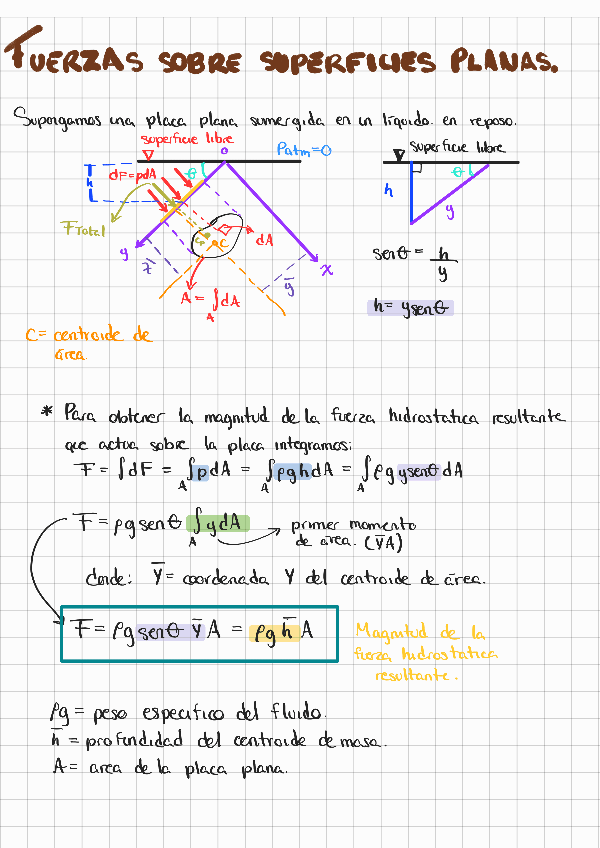 FUERZAS SOBRE SUPERFICIES PLANAS.
Supongamos una placa plana sumergida en un líquido en reposo.
superficie libre
Patm=0
superficie libre
O
h
dF=pdA
θ
θ
h
y
FTotal
C
dA
y
x̄
x
ȳ
A = ∫_A dA
senθ = h/y
h = ysenθ
C = centroide de
área.
* Para obtener la magnitud de la fuerza hidrostatica resultante
que actua sobre la placa integramos:
F = ∫dF = ∫_A pdA = ∫_A ρghdA = ∫_A ρgysenθdA
F = ρgsenθ ∫_A ydA → primer momento
de área. (ȳA)
donde: ȳ = coordenada Y del centroide de área.
F = ρgsenθ ȳA = ρg h̄ A
Magnitud de la
fuerza hidrostatica
resultante.
ρg = peso especifico del fluido.
h̄ = profundidad del centroide de masa.
A = area de la placa plana.